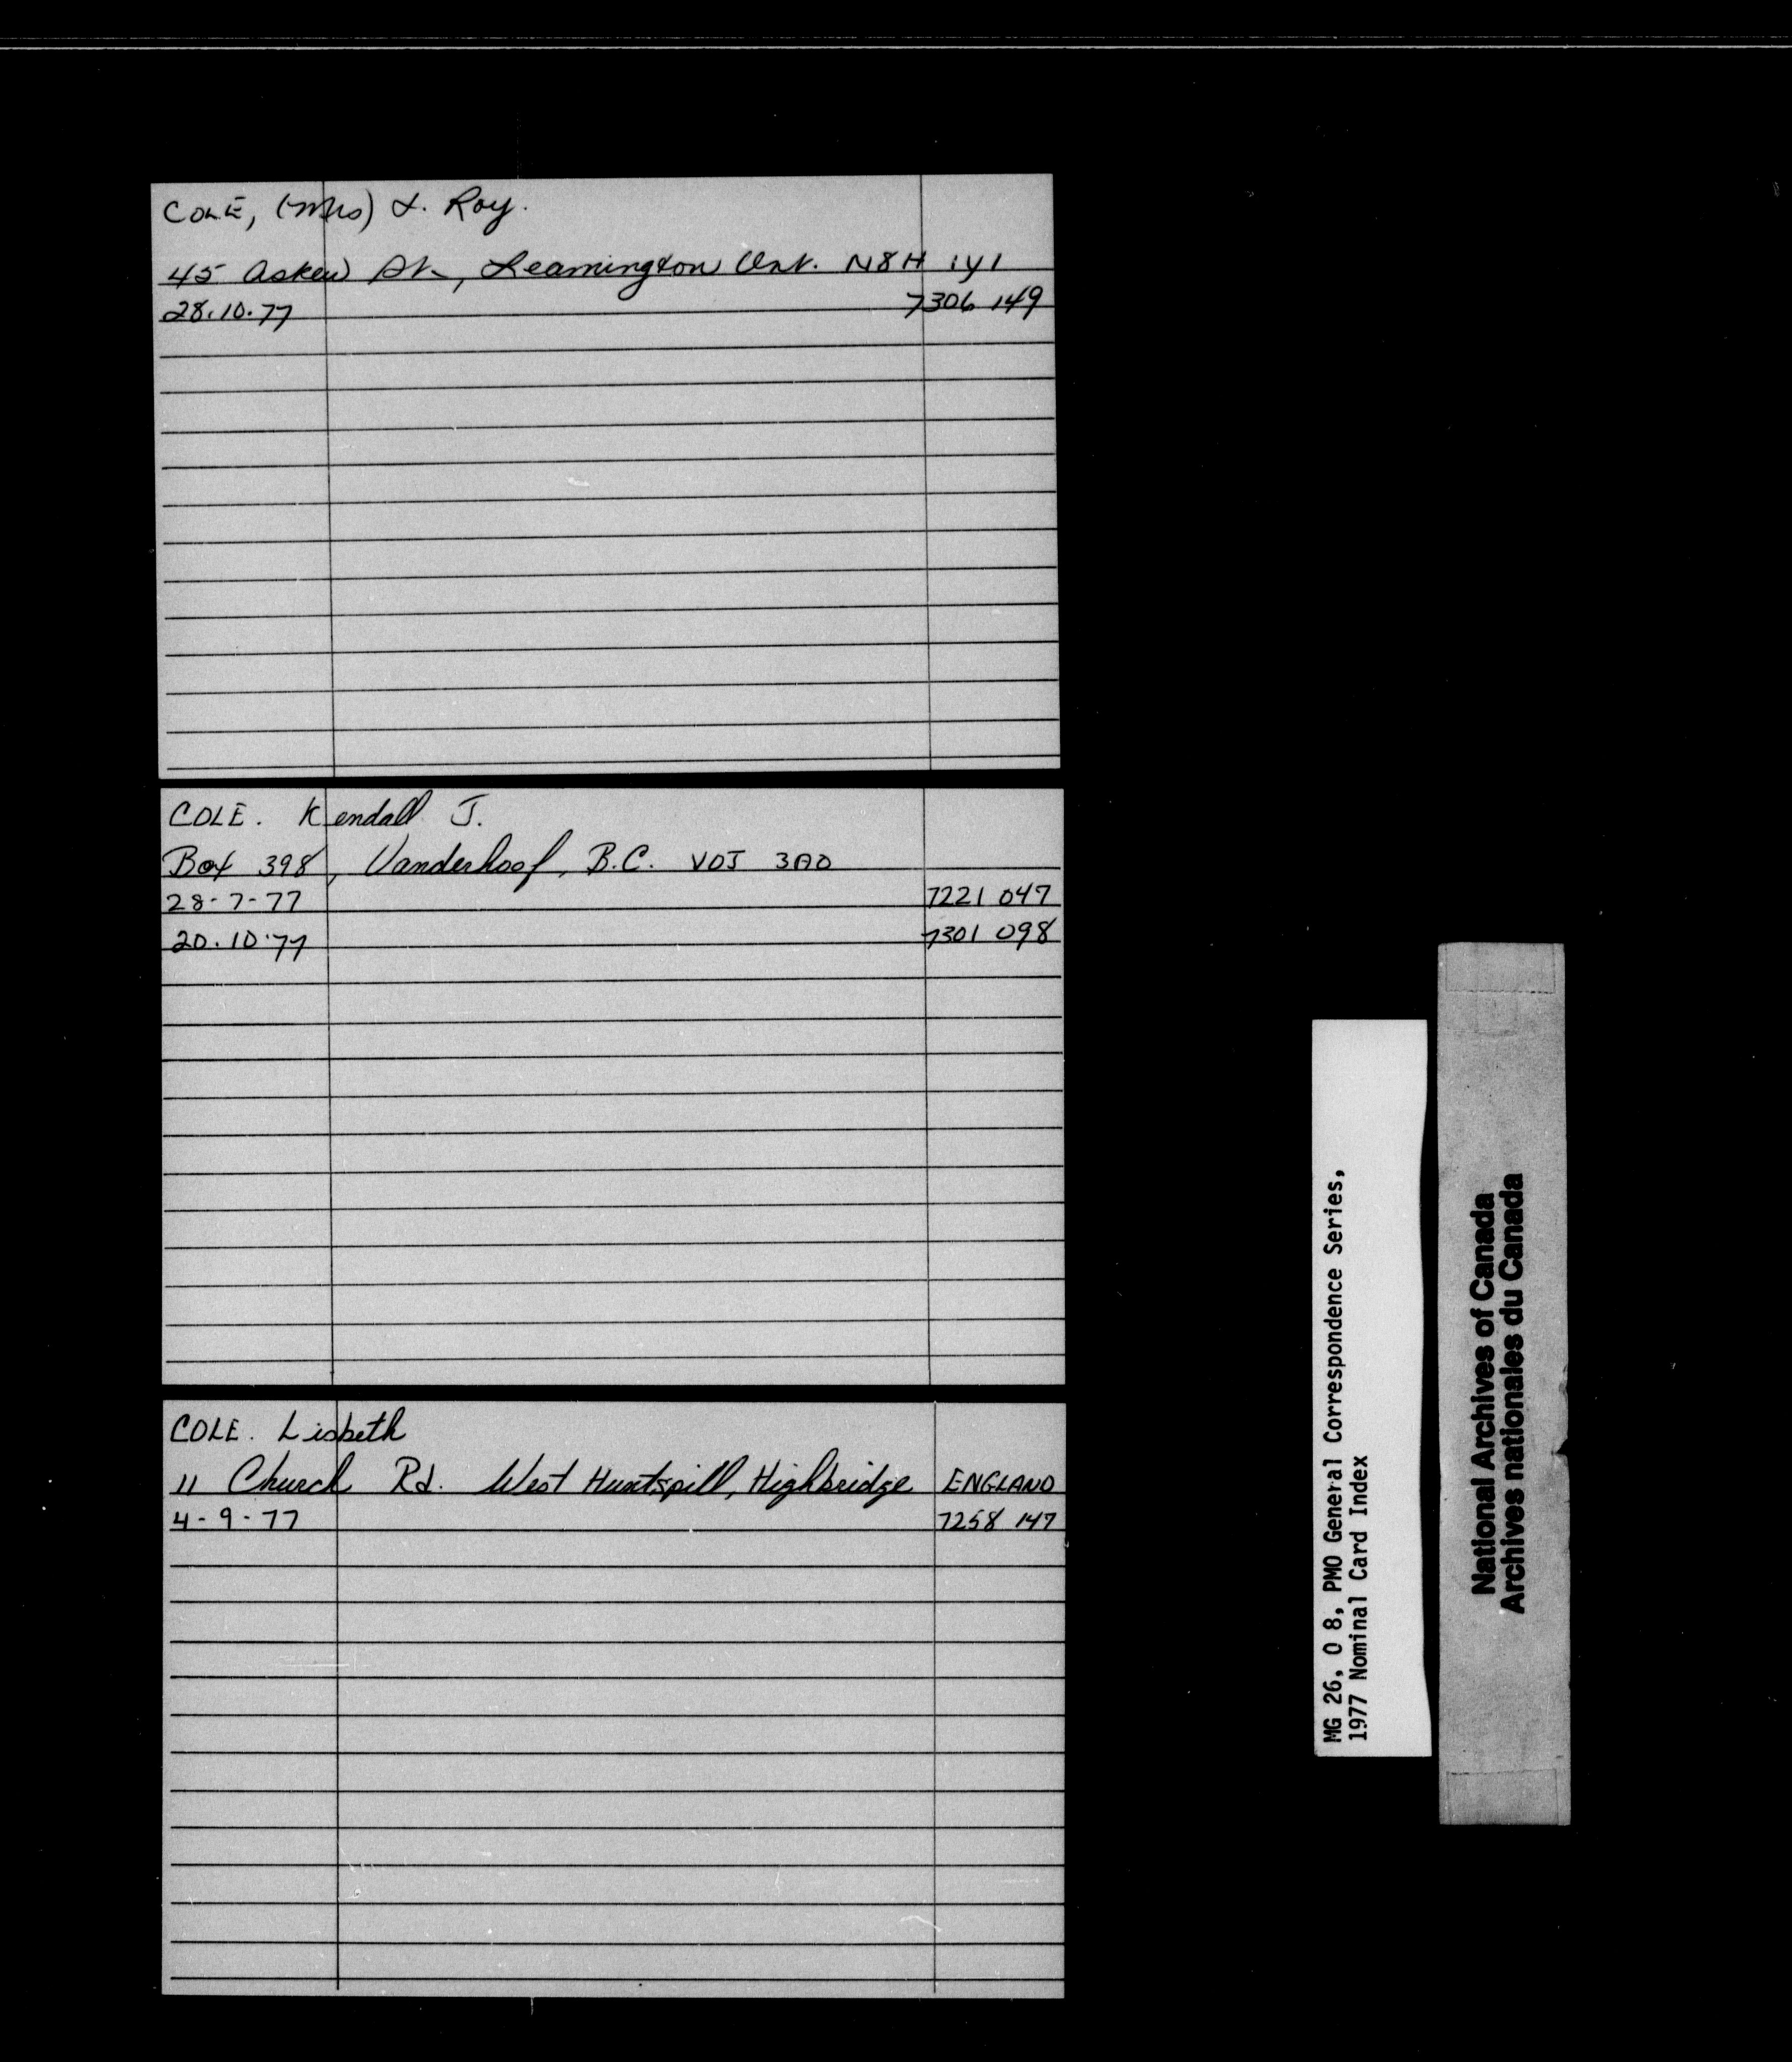 COLE, (Mrs) L. Roy.
45 Askew St., Leamington Ont. N8H 1Y1
28.10.77 7306 149
COLE. Kendall J.
Box 398, Vanderhoof, B.C. V0J 3A0
28-7-77 7221 047
20.10.77 7301 098
COLE. Lisbeth
11 Church Rd. West Huntspill, Highbridge ENGLAND
4-9-77 7258 147
MG 26, O 8, PMO General Correspondence Series,
1977 Nominal Card Index
National Archives of Canada
Archives nationales du Canada